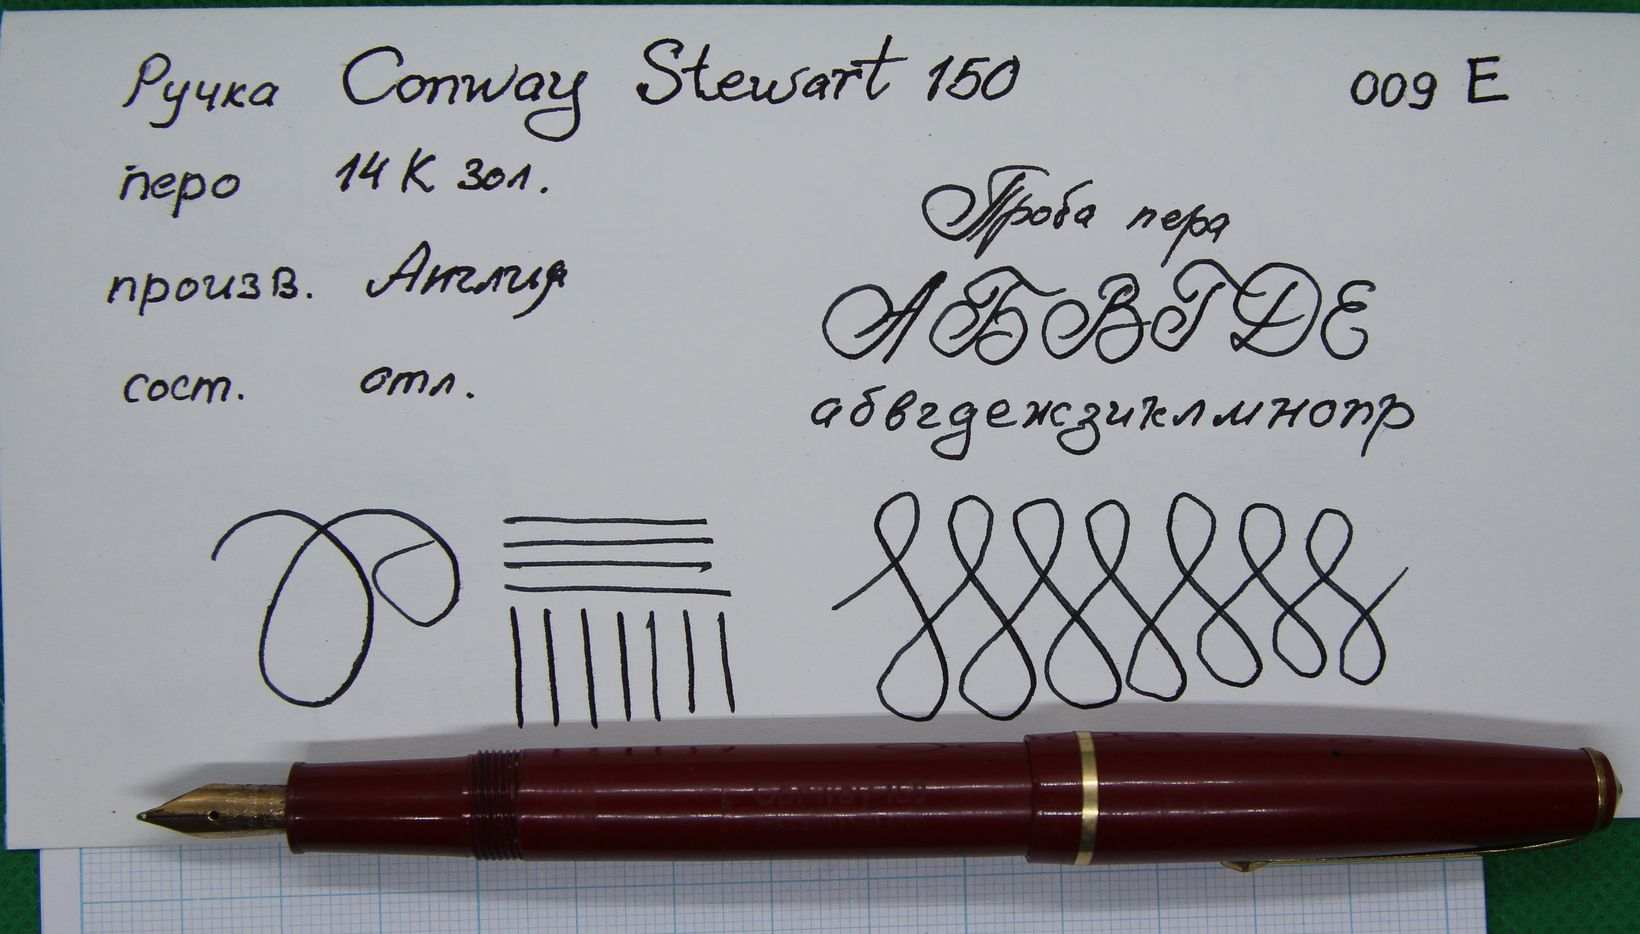 Ручка Conway Stewart 150
009 E
перо 14 К зол.
произв. Англия
сост. отл.
Проба пера
АБВГДЕ
абвгдежзиклмнопр